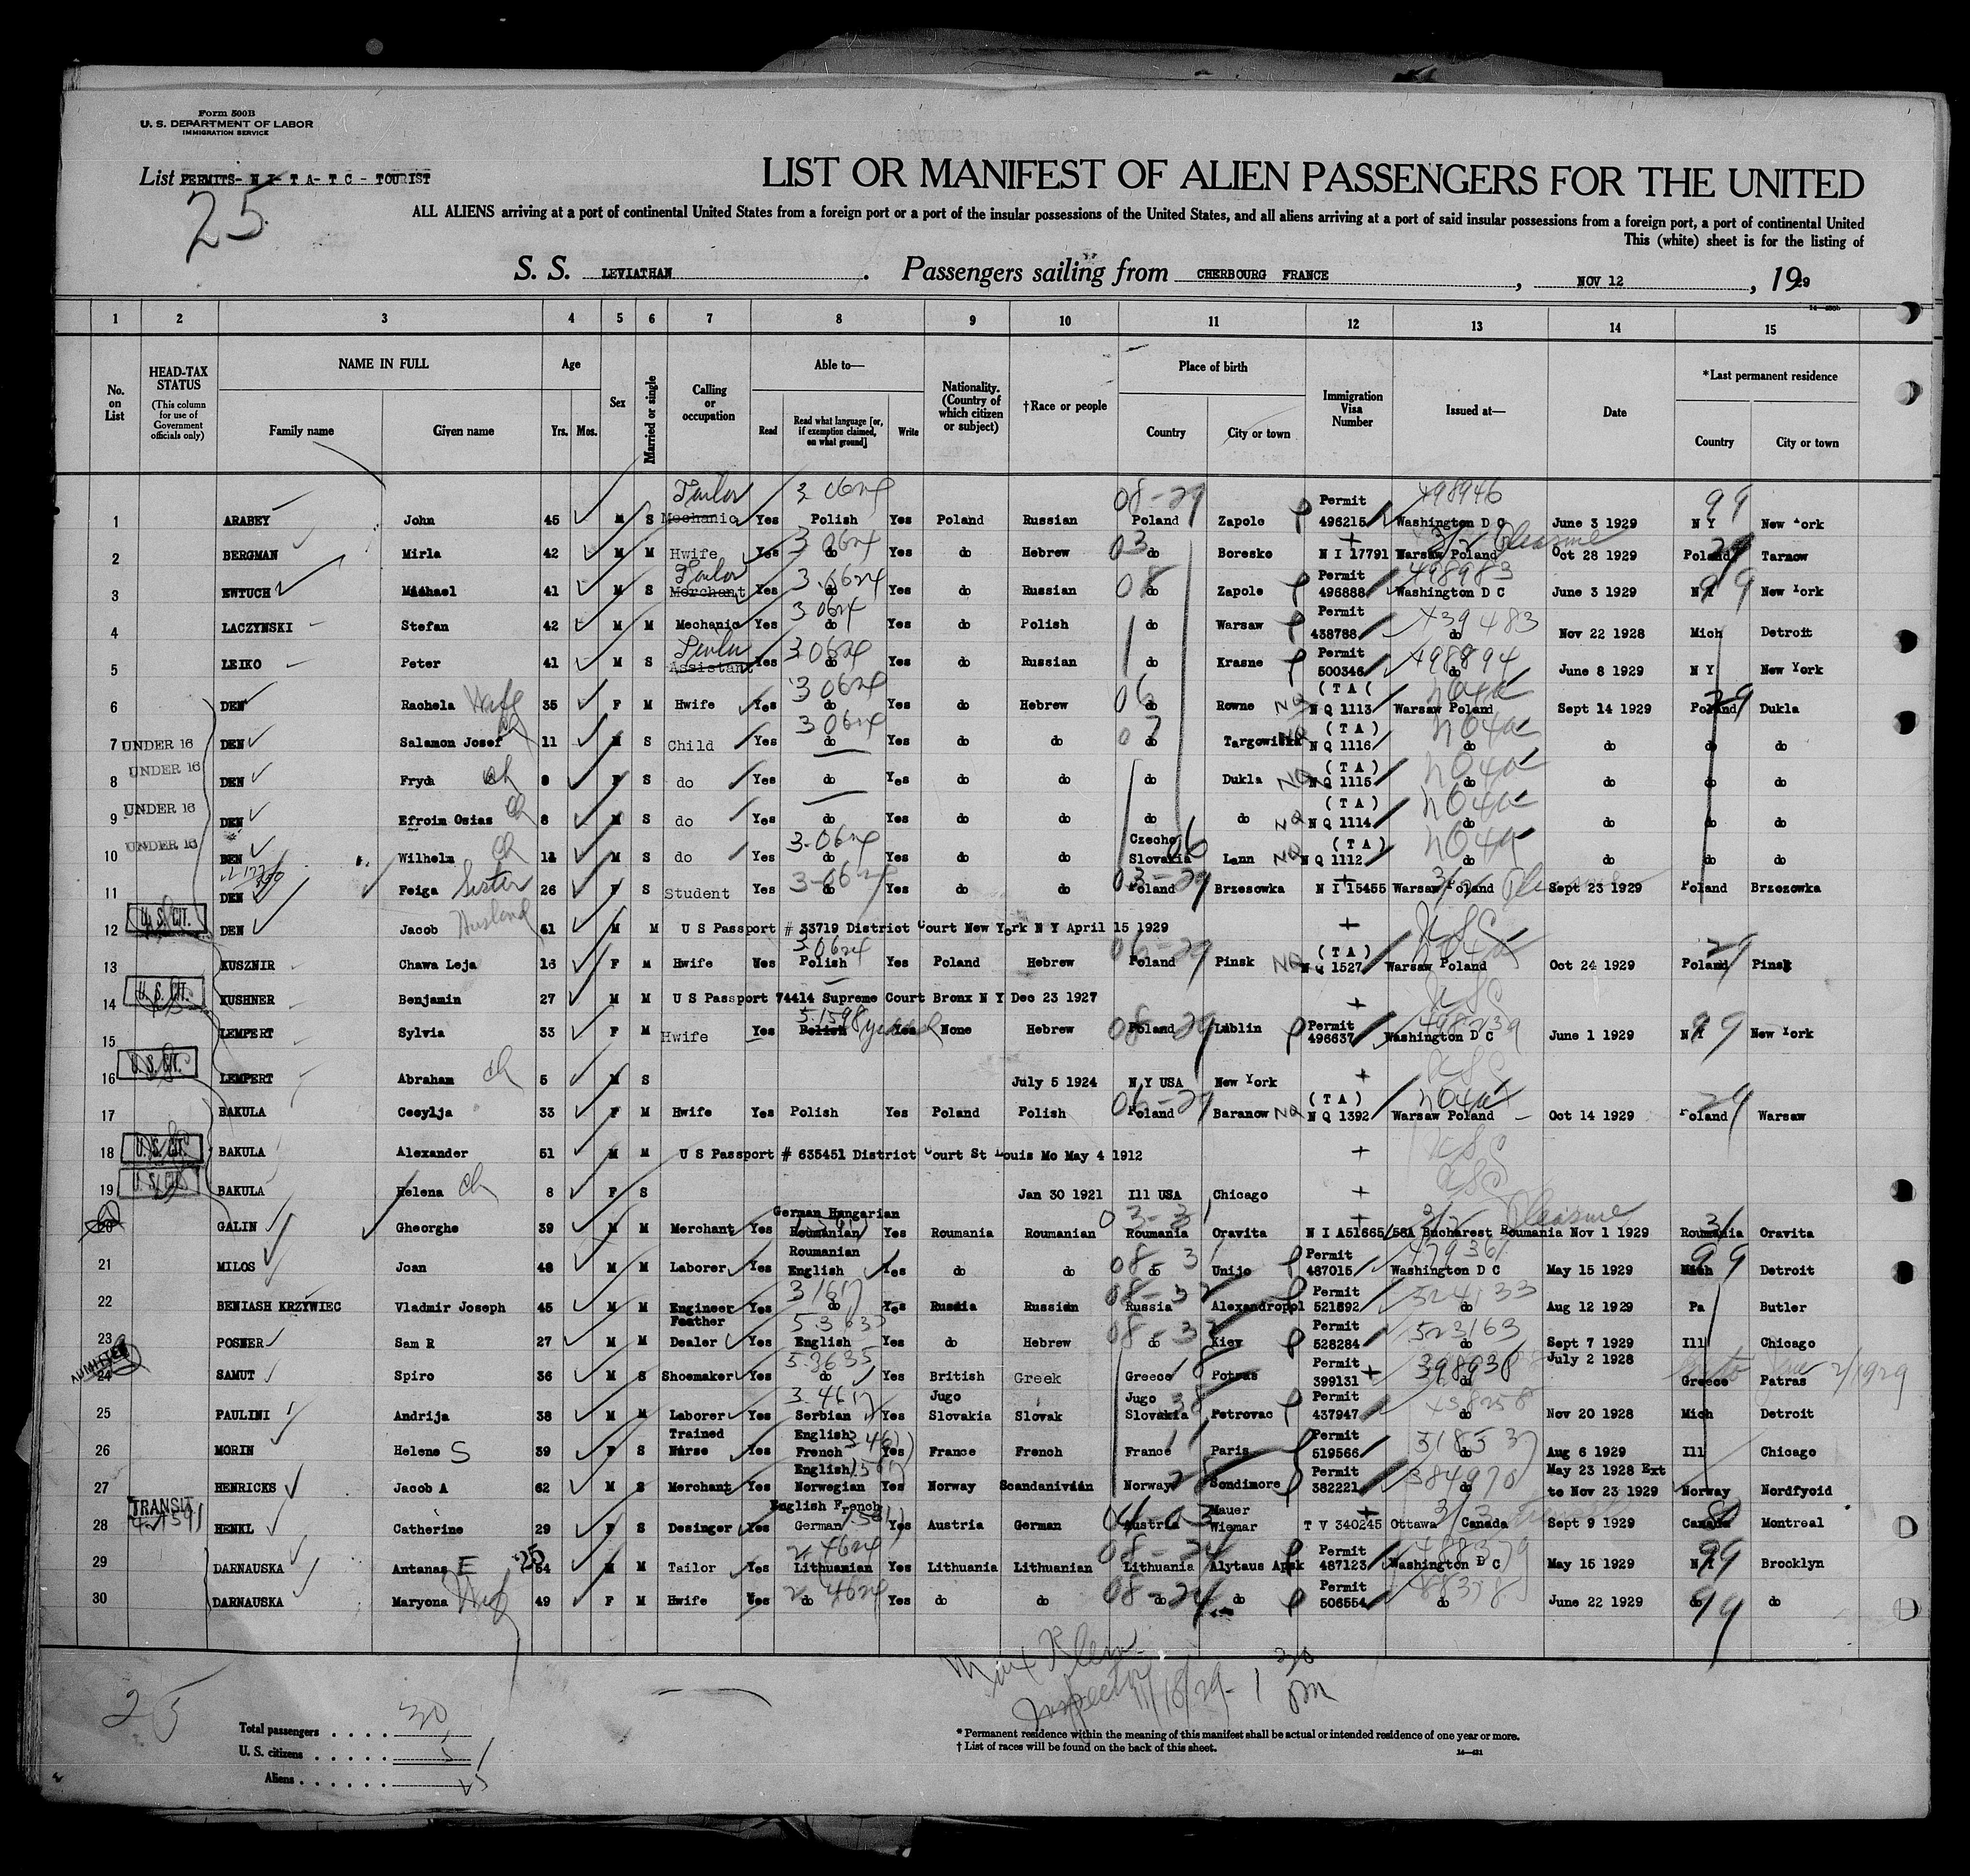 Form 500B
U. S. DEPARTMENT OF LABOR
IMMIGRATION SERVICE
List PERMITS- N I- T A- T C - TOURIST
25
LIST OR MANIFEST OF ALIEN PASSENGERS FOR THE UNITED
ALL ALIENS arriving at a port of continental United States from a foreign port or a port of the insular possessions of the United States, and all aliens arriving at a port of said insular possessions from a foreign port, a port of continental United
This (white) sheet is for the listing of
S. S. LEVIATHAN. Passengers sailing from CHERBOURG FRANCE, NOV 12, 1929
1 2 3 4 5 6 7 8 9 10 11 12 13 14 15
No. on List
HEAD-TAX STATUS (This column for use of Government officials only)
NAME IN FULL Family name Given name
Age Yrs. Mos.
Sex
Married or single
Calling or occupation
Able to— Read Read what language [or, if exemption claimed, on what ground] Write
Nationality. (Country of which citizen or subject)
†Race or people
Place of birth Country City or town
Immigration Visa Number
Issued at—
Date
*Last permanent residence Country City or town
1 ARABEY John 45 M S Mechanic Tailor Yes Polish Yes Poland Russian Poland Zapole Permit 496215 Washington D C 498946 June 3 1929 N Y New York
2 BERGMAN Mirla 42 M M Hwife Yes do Yes do Hebrew do Boresko N I 17791 Warsaw Poland Pleasure Oct 28 1929 Poland Tarnow
3 EWTUCH Michael 41 M S Merchant Tailor Yes do Yes do Russian do Zapole Permit 496888 Washington D C 498983 June 3 1929 N Y New York
4 LACZYNSKI Stefan 42 M M Mechanic Yes do Yes do Polish do Warsaw Permit 438788 do 439483 Nov 22 1928 Mich Detroit
5 LEIKO Peter 41 M S Assistant Yes do Yes do Russian do Krasne Permit 500346 do 498894 June 8 1929 N Y New York
6 DEN Rachela Wife 35 F M Hwife Yes do Yes do Hebrew do Rowne (T A ( N Q 1113 Warsaw Poland Sept 14 1929 Poland Dukla
7 UNDER 16 DEN Salamon Josef ch 11 M S Child Yes do Yes do do do Targowiska (T A) N Q 1116 do do do do
8 UNDER 16 DEN Fryda ch 9 F S do Yes do Yes do do do Dukla (T A) N Q 1115 do do do do
9 UNDER 16 DEN Efroim Osias ch 8 M S do Yes do Yes do do do do (T A) N Q 1114 do do do do
10 UNDER 16 DEN Wilhelm ch M S do Yes do Yes do do Czecho Slovakia Lann (T A) N Q 1112 do do do do
11 DEN Feiga Sister 26 F S Student Yes do Yes do do Poland Brzesowka N I 15455 Warsaw Poland Sept 23 1929 Poland Brzezowka
12 U. S. CIT. DEN Jacob Husband 41 M M U S Passport # 33719 District Court New York N Y April 15 1929
13 KUSZNIR Chawa Leja 16 F M Hwife Yes Polish Yes Poland Hebrew Poland Pinsk (T A) N Q 1527 Warsaw Poland Oct 24 1929 Poland Pinsk
14 U. S. CIT. KUSHNER Benjamin 27 M M U S Passport 74414 Supreme Court Bronx N Y Dec 23 1927
15 LEMPERT Sylvia 33 F M Hwife Yes Polish Yes None Hebrew Poland Lublin Permit 496637 Washington D C June 1 1929 N Y New York
16 U. S. CIT. LEMPERT Abraham ch 5 M S July 5 1924 N Y USA New York
17 BAKULA Cecylja 33 F M Hwife Yes Polish Yes Poland Polish Poland Baranow (T A) N Q 1392 Warsaw Poland Oct 14 1929 Poland Warsaw
18 U. S. CIT. BAKULA Alexander 51 M M U S Passport # 635451 District Court St Louis Mo May 4 1912
19 U. S. CIT. BAKULA Helena ch 8 F S Jan 30 1921 Ill USA Chicago
20 GALIN Gheorghe 39 M M Merchant Yes German Hungarian Roumanian Yes Roumania Roumanian Roumania Oravita N I A51665/58A Bucharest Roumania Pleasure Nov 1 1929 Roumania Oravita
21 MILOS Joan 48 M M Laborer Yes Roumanian English Yes do do do Unijo Permit 487015 Washington D C May 15 1929 Mich Detroit
22 BENIASH KRZYWIEC Vladmir Joseph 45 M M Engineer Yes do Yes Russia Russian Russia Alexandropol Permit 521892 do 524133 Aug 12 1929 Pa Butler
23 POSNER Sam R 27 M M Feather Dealer Yes English Yes do Hebrew do Kiev Permit 528284 do 523163 Sept 7 1929 Ill Chicago
24 ADMITTED SAMUT Spiro 36 M S Shoemaker Yes do Yes British Greek Greece Potras Permit 399131 do 398938 July 2 1928 Greece Patras
25 PAULINI Andrija 38 M M Laborer Yes Serbian Yes Jugo Slovakia Slovak Jugo Slovakia Petrovac Permit 437947 do 438258 Nov 20 1928 Mich Detroit
26 MORIN Helene S 39 F S Trained Nurse Yes English French Yes France French France Paris Permit 519566 do 518537 Aug 6 1929 Ill Chicago
27 HENRICKS Jacob A 62 M S Merchant Yes English Norwegian Yes Norway Scandanivian Norway Sondimore Permit 382221 do 384970 May 23 1928 Ext to Nov 23 1929 Norway Nordfyoid
28 TRANSIT HENKL Catherine 29 F S Desinger Yes English French German Yes Austria German Austria Mauer Wiemar T V 340245 Ottawa Canada Sept 9 1929 Canada Montreal
29 DARNAUSKA Antanas E 54 M M Tailor Yes Lithuanian Yes Lithuania Lithuanian Lithuania Alytaus Apsk Permit 487123 Washington D C 488379 May 15 1929 N Y Brooklyn
30 DARNAUSKA Maryona Wife 49 F M Hwife Yes do Yes do do do do Permit 506554 do June 22 1929 do do
Max Klein
Inspector 11/18/29 - 1 30 pm
25
Total passengers . . . . 30
U. S. citizens . . . . . 5
Aliens . . . . . . 25
* Permanent residence within the meaning of this manifest shall be actual or intended residence of one year or more.
† List of races will be found on the back of this sheet.